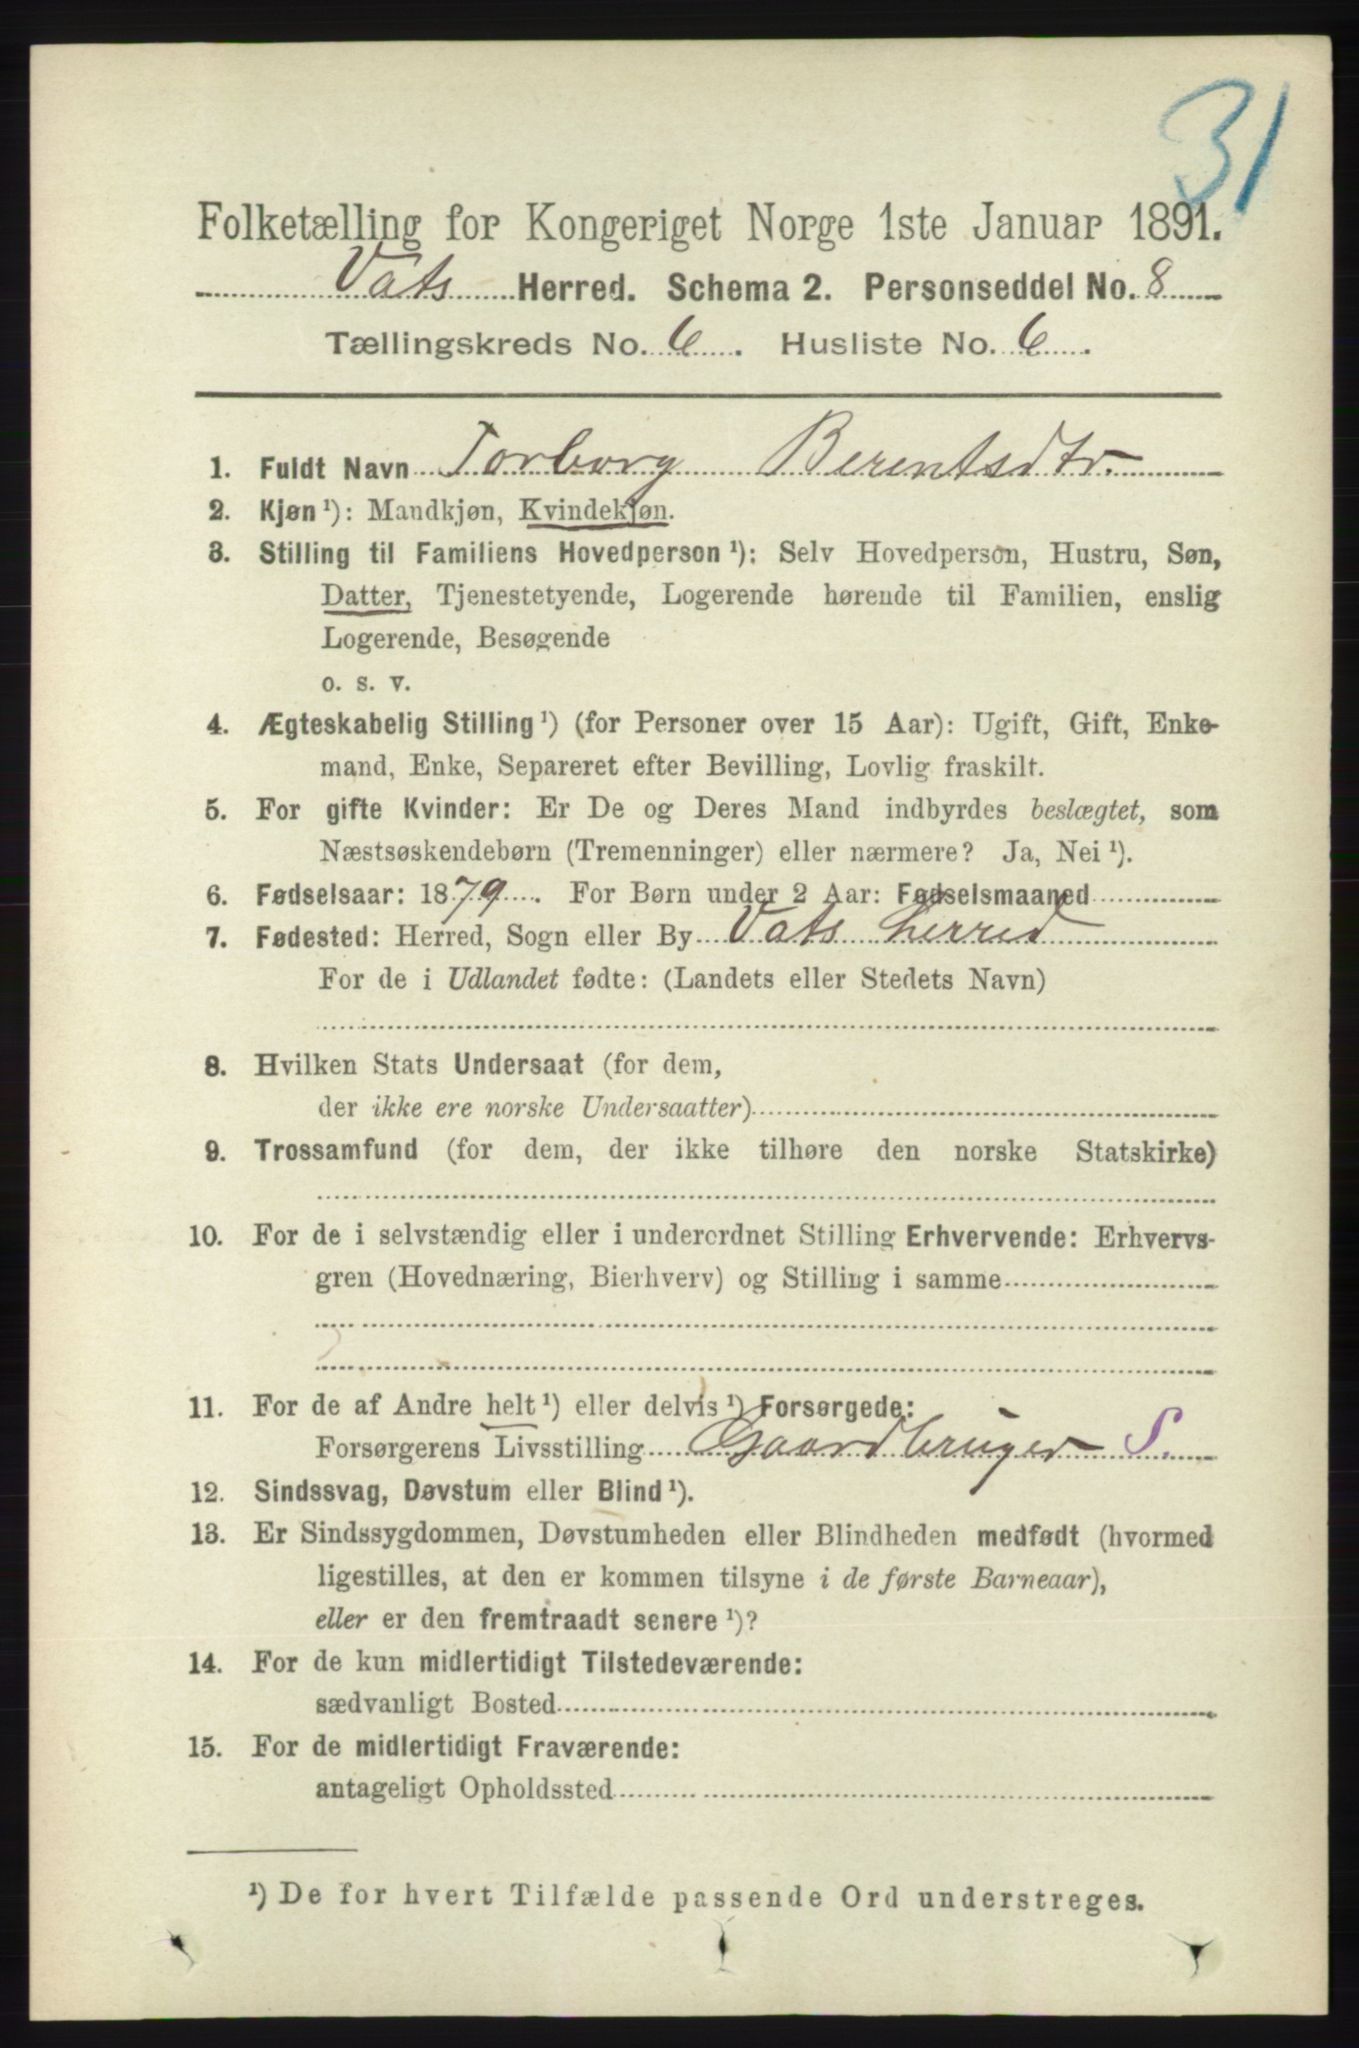 31
Folketælling for Kongeriget Norge 1ste Januar 1891.
Vats Herred. Schema 2. Personseddel No. 8
Tællingskreds No. 6. Husliste No. 6.
1. Fuldt Navn Torborg Berentsdtr.
2. Kjøn ¹): Mandkjøn, Kvindekjøn.
3. Stilling til Familiens Hovedperson ¹): Selv Hovedperson, Hustru, Søn,
Datter, Tjenestetyende, Logerende hørende til Familien, enslig
Logerende, Besøgende
o. s. v.
4. Ægteskabelig Stilling ¹) (for Personer over 15 Aar): Ugift, Gift, Enke-
mand, Enke, Separeret efter Bevilling, Lovlig fraskilt.
5. For gifte Kvinder: Er De og Deres Mand indbyrdes beslægtet, som
Næstsøskendebørn (Tremenninger) eller nærmere? Ja, Nei ¹).
6. Fødselsaar: 1879. For Børn under 2 Aar: Fødselsmaaned
7. Fødested: Herred, Sogn eller By Vats herred
For de i Udlandet fødte: (Landets eller Stedets Navn)
8. Hvilken Stats Undersaat (for dem,
der ikke ere norske Undersaatter)
9. Trossamfund (for dem, der ikke tilhøre den norske Statskirke)
10. For de i selvstændig eller i underordnet Stilling Erhvervende: Erhvervs-
gren (Hovednæring, Bierhverv) og Stilling i samme
11. For de af Andre helt ¹) eller delvis ¹) Forsørgede:
Forsørgerens Livsstilling Gaardbruger S.
12. Sindssvag, Døvstum eller Blind ¹).
13. Er Sindssygdommen, Døvstumheden eller Blindheden medfødt (hvormed
ligestilles, at den er kommen tilsyne i de første Barneaar),
eller er den fremtraadt senere ¹)?
14. For de kun midlertidigt Tilstedeværende:
sædvanligt Bosted
15. For de midlertidigt Fraværende:
antageligt Opholdssted
¹) De for hvert Tilfælde passende Ord understreges.